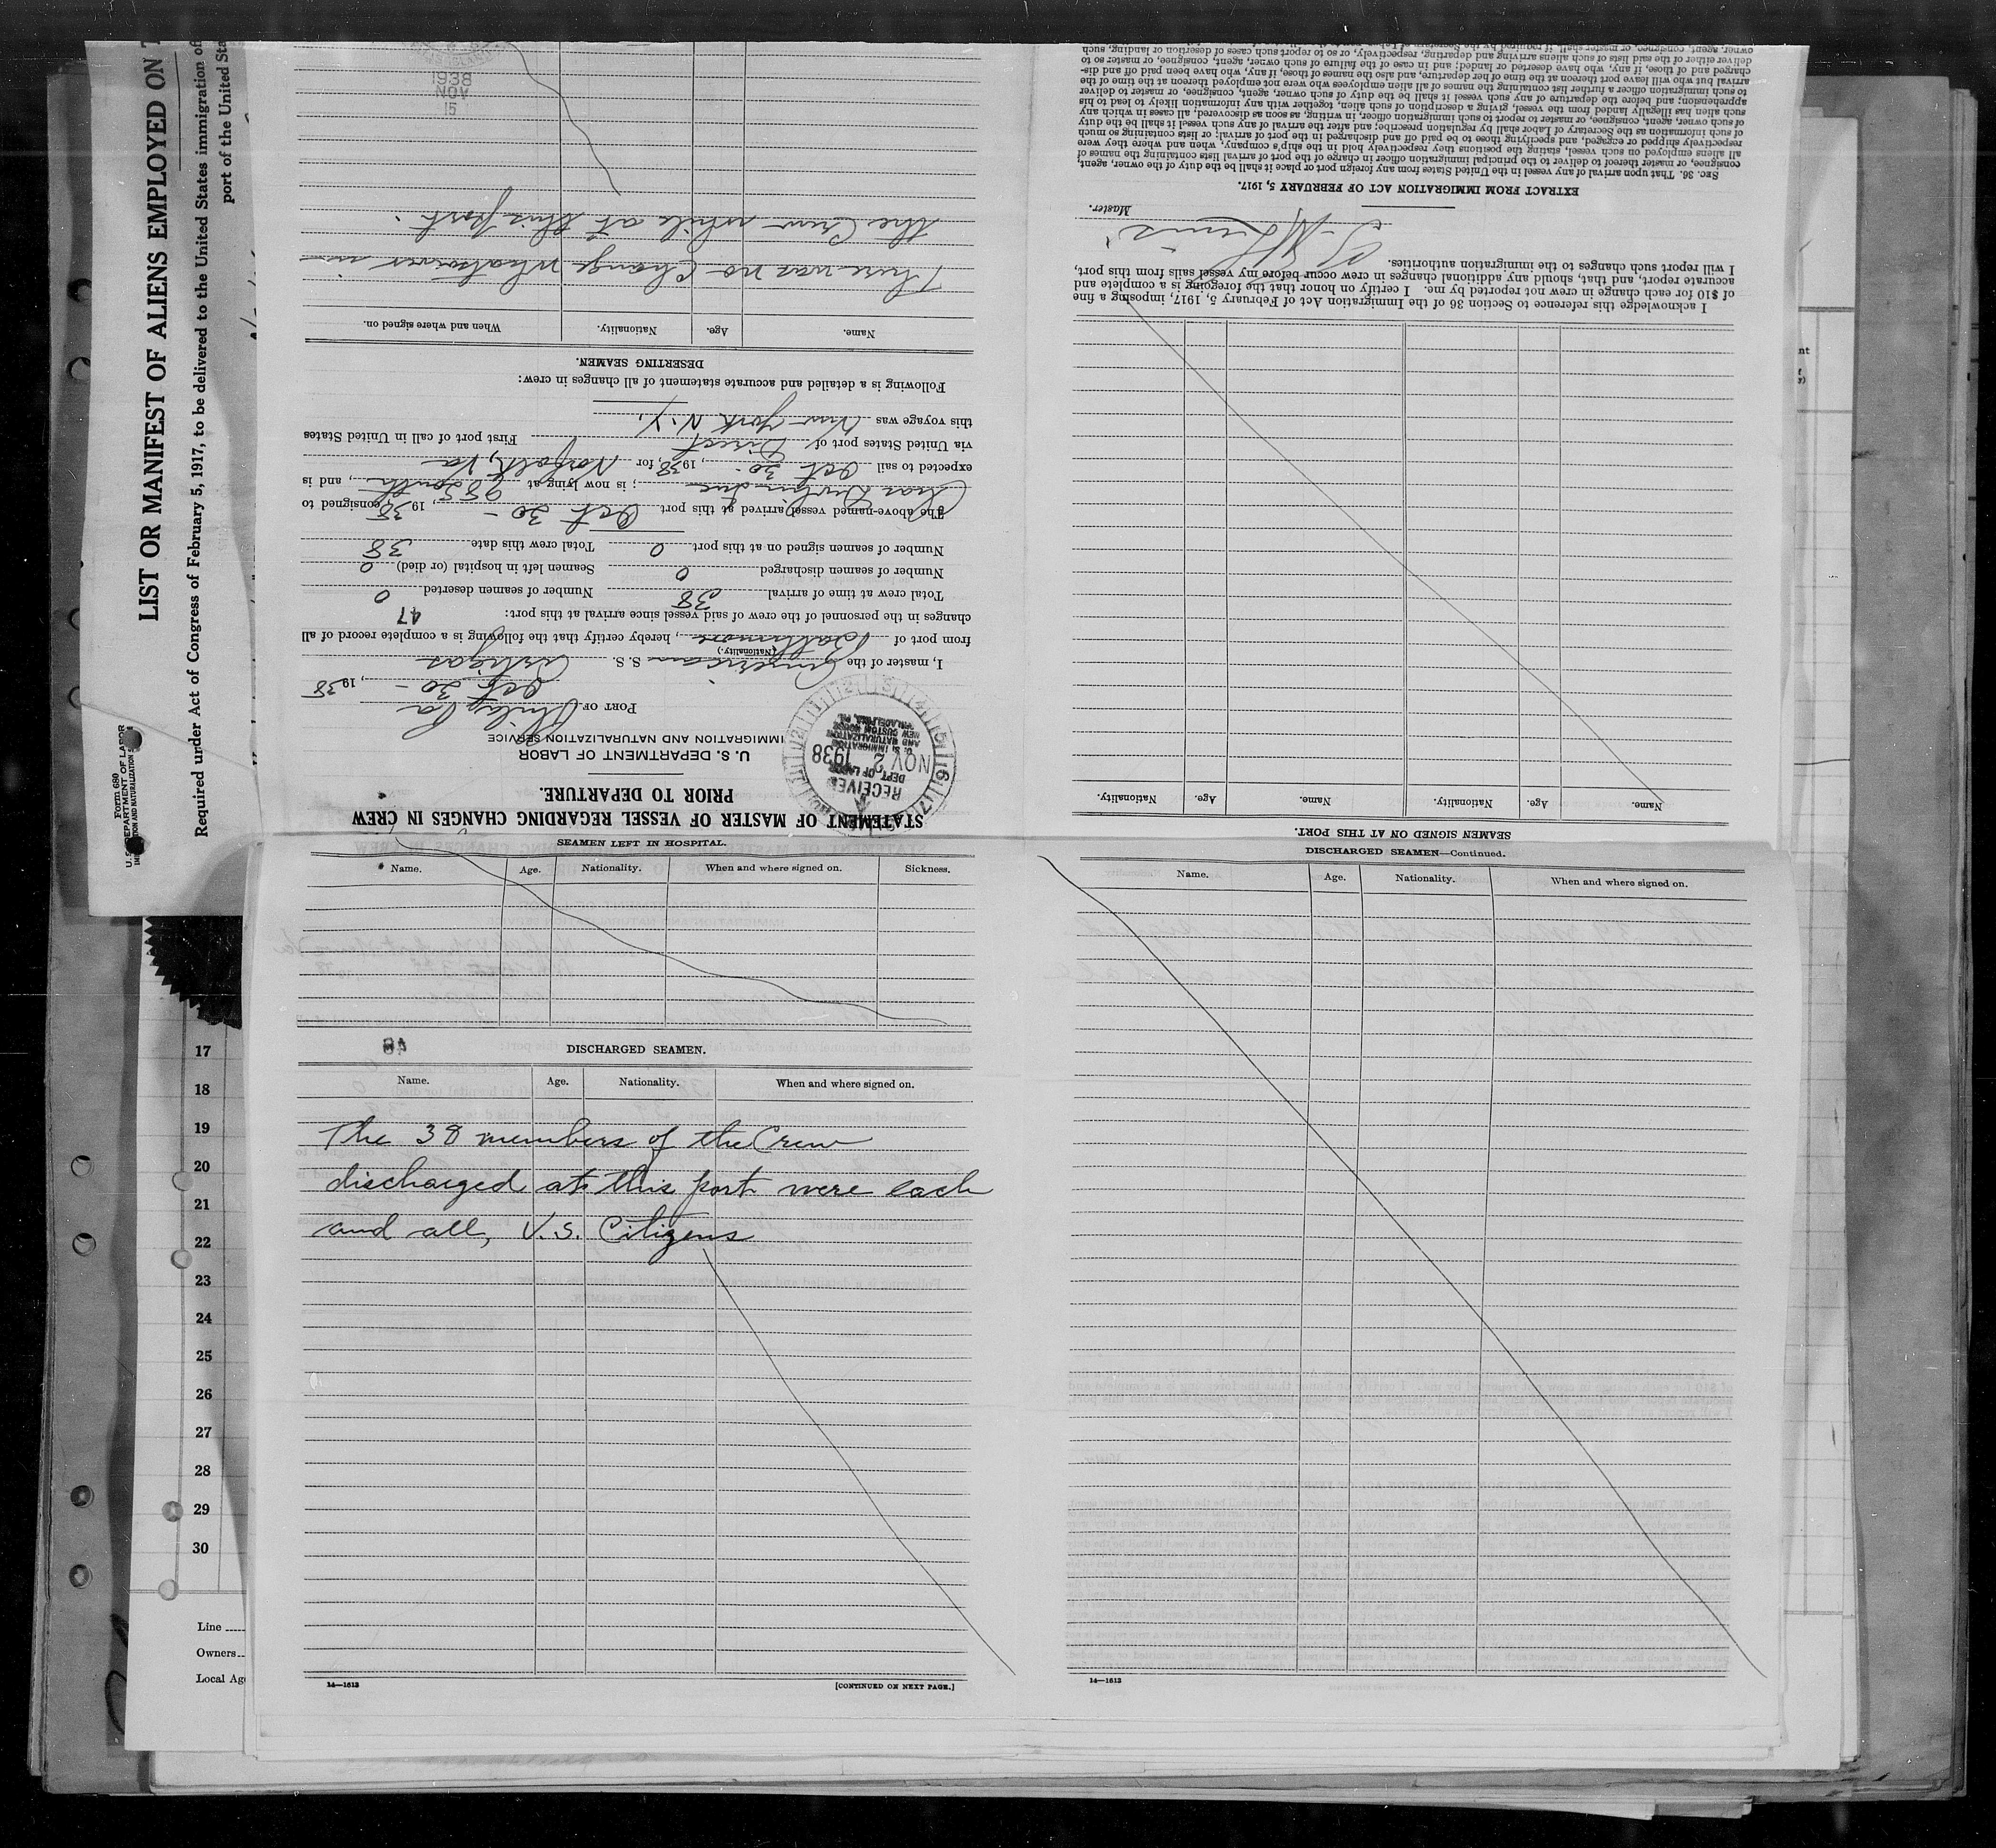 LIST OR MANIFEST OF ALIENS EMPLOYED ON
Required under Act of Congress of February 5, 1917, to be delivered to the United States immigration of
port of the United Sta
Form 680
U. S. DEPARTMENT OF LABOR
STATEMENT OF MASTER OF VESSEL REGARDING CHANGES IN CREW
PRIOR TO DEPARTURE.
U. S. DEPARTMENT OF LABOR
IMMIGRATION AND NATURALIZATION SERVICE
RECEIVED
DEPT. OF LABOR
NOV 2 1938
U. S. IMMIGRATION
AND NATURALIZATION
NEW CUSTOM HOUSE
PHILADELPHIA, PA.
PORT OF Phila, Pa
Oct 30 -, 1938
I, master of the American S. S. Artigas
(Nationality.)
from port of Baltimore, hereby certify that the following is a complete record of all
changes in the personnel of the crew of said vessel since arrival at this port:
47
Total crew at time of arrival 38 Number of seamen deserted 0
Number of seamen discharged 0 Seamen left in hospital (or died) 0
Number of seamen signed on at this port 0 Total crew this date 38
The above-named vessel arrived at this port Oct 30 -, 1938, consigned to
; is now lying at 98 South, and is
expected to sail Oct 30 -, 1938, for Norfolk, Va
via United States port of Direct First port of call in United States
this voyage was New York N.Y.
Following is a detailed and accurate statement of all changes in crew:
DESERTING SEAMEN.
Name. Age. Nationality. When and where signed on.
There was no change whatsoever in
the Crew while at this port.
15
NOV
1938
SEAMEN SIGNED ON AT THIS PORT.
Name. Age. Nationality. Name. Age. Nationality.
I acknowledge this reference to Section 36 of the Immigration Act of February 5, 1917, imposing a fine
of $10 for each change in crew not reported by me. I certify on honor that the foregoing is a complete and
accurate report, and that, should any additional changes in crew occur before my vessel sails from this port,
I will report such changes to the immigration authorities.
Master.
EXTRACT FROM IMMIGRATION ACT OF FEBRUARY 5, 1917.
SEC. 36. That upon arrival of any vessel in the United States from any foreign port or place it shall be the duty of the owner, agent,
consignee, or master thereof to deliver to the principal immigration officer in charge of the port of arrival lists containing the names of
all aliens employed on such vessel, stating the positions they respectively hold in the ship's company, when and where they were
respectively shipped or engaged, and specifying those to be paid off and discharged in the port of arrival; or lists containing so much
of such information as the Secretary of Labor shall by regulation prescribe; and after the arrival of any such vessel it shall be the duty
of such owner, agent, consignee, or master to report to such immigration officer, in writing, as soon as discovered, all cases in which any
such alien has illegally landed from the vessel, giving a description of such alien, together with any information likely to lead to his
apprehension; and before the departure of any such vessel it shall be the duty of such owner, agent, consignee, or master to deliver
to such immigration officer a further list containing the names of all alien employees who were not employed thereon at the time of the
arrival but who will leave port thereon at the time of her departure, and also the names of those, if any, who have been paid off and dis-
charged and of those, if any, who have deserted or landed; and in case of the failure of such owner, agent, consignee, or master so to
deliver either of the said lists of such aliens arriving and departing, respectively, or so to report such cases of desertion or landing, such
owner, agent, consignee, or master shall, if required by the Secretary of Labor
SEAMEN LEFT IN HOSPITAL.
Name. Age. Nationality. When and where signed on. Sickness.
DISCHARGED SEAMEN.
Name. Age. Nationality. When and where signed on.
The 38 members of the Crew
discharged at this port were each
and all, U.S. Citizens
14—1613 [CONTINUED ON NEXT PAGE.]
DISCHARGED SEAMEN—Continued.
Name. Age. Nationality. When and where signed on.
14—1613
17
18
19
20
21
22
23
24
25
26
27
28
29
30
Line
Owners
Local Ag